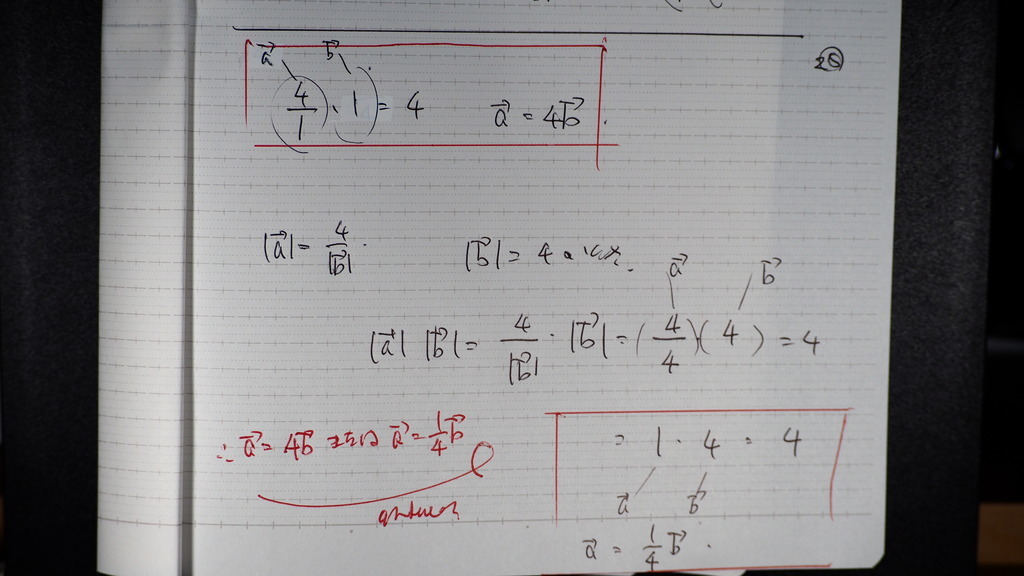 2Q
a⃗ b⃗
(4/1)·(1) = 4 a⃗ = 4b⃗.
|a⃗| = 4/|b⃗|. |b⃗| = 4の
a⃗ b⃗
|a⃗| |b⃗| = 4/|b⃗| · |b⃗| = (4/4)(4) = 4
∴ a⃗ = 4b⃗ または a⃗ = 1/4 b⃗
= 1 · 4 = 4
a⃗ b⃗
a⃗ = 1/4 b⃗.